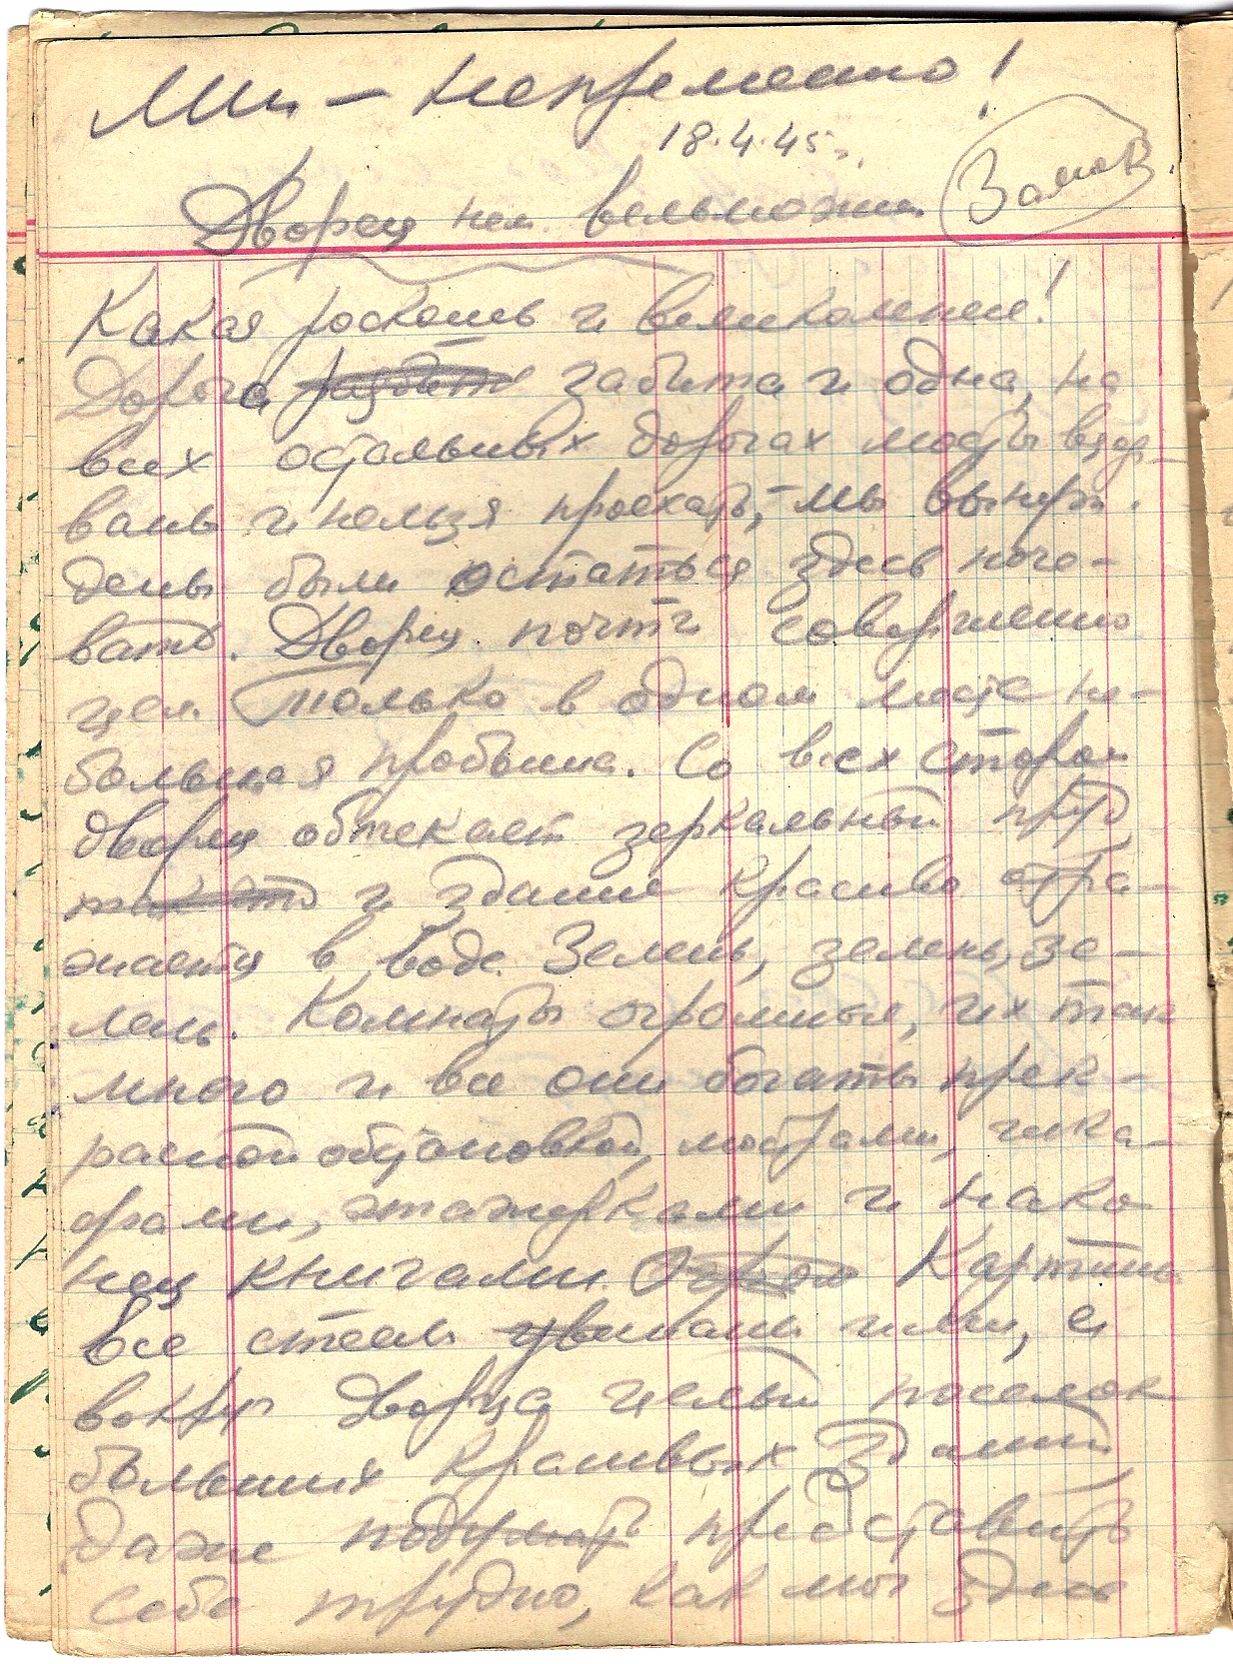 Ми – непременно!
18.4.45 г.
Замок.
Дворец нем. вельможи
Какая роскошь и великолепие!
Дорога разбита забита и одна, на
всех остальных дорогах мосты взор-
ваны и нельзя проехать, – мы вынуж-
дены были остаться здесь ноче-
вать. Дворец почти совершенно
цел. Только в одном месте не-
большая пробоина. Со всех сторон
дворец обтекает зеркальный пруд,
и здание красиво отра-
жается в воде. Зелень, зелень, зе-
лень. Комнаты огромные, их так
много и все они богаты прек-
расной обстановкой, люстрами, шка-
фами, этажерками и нако-
нец книгами. Картины
все стены ими, а
вокруг дворца целый поселок
больших красивых зданий
Даже подумать представить
себе трудно, как мы здесь